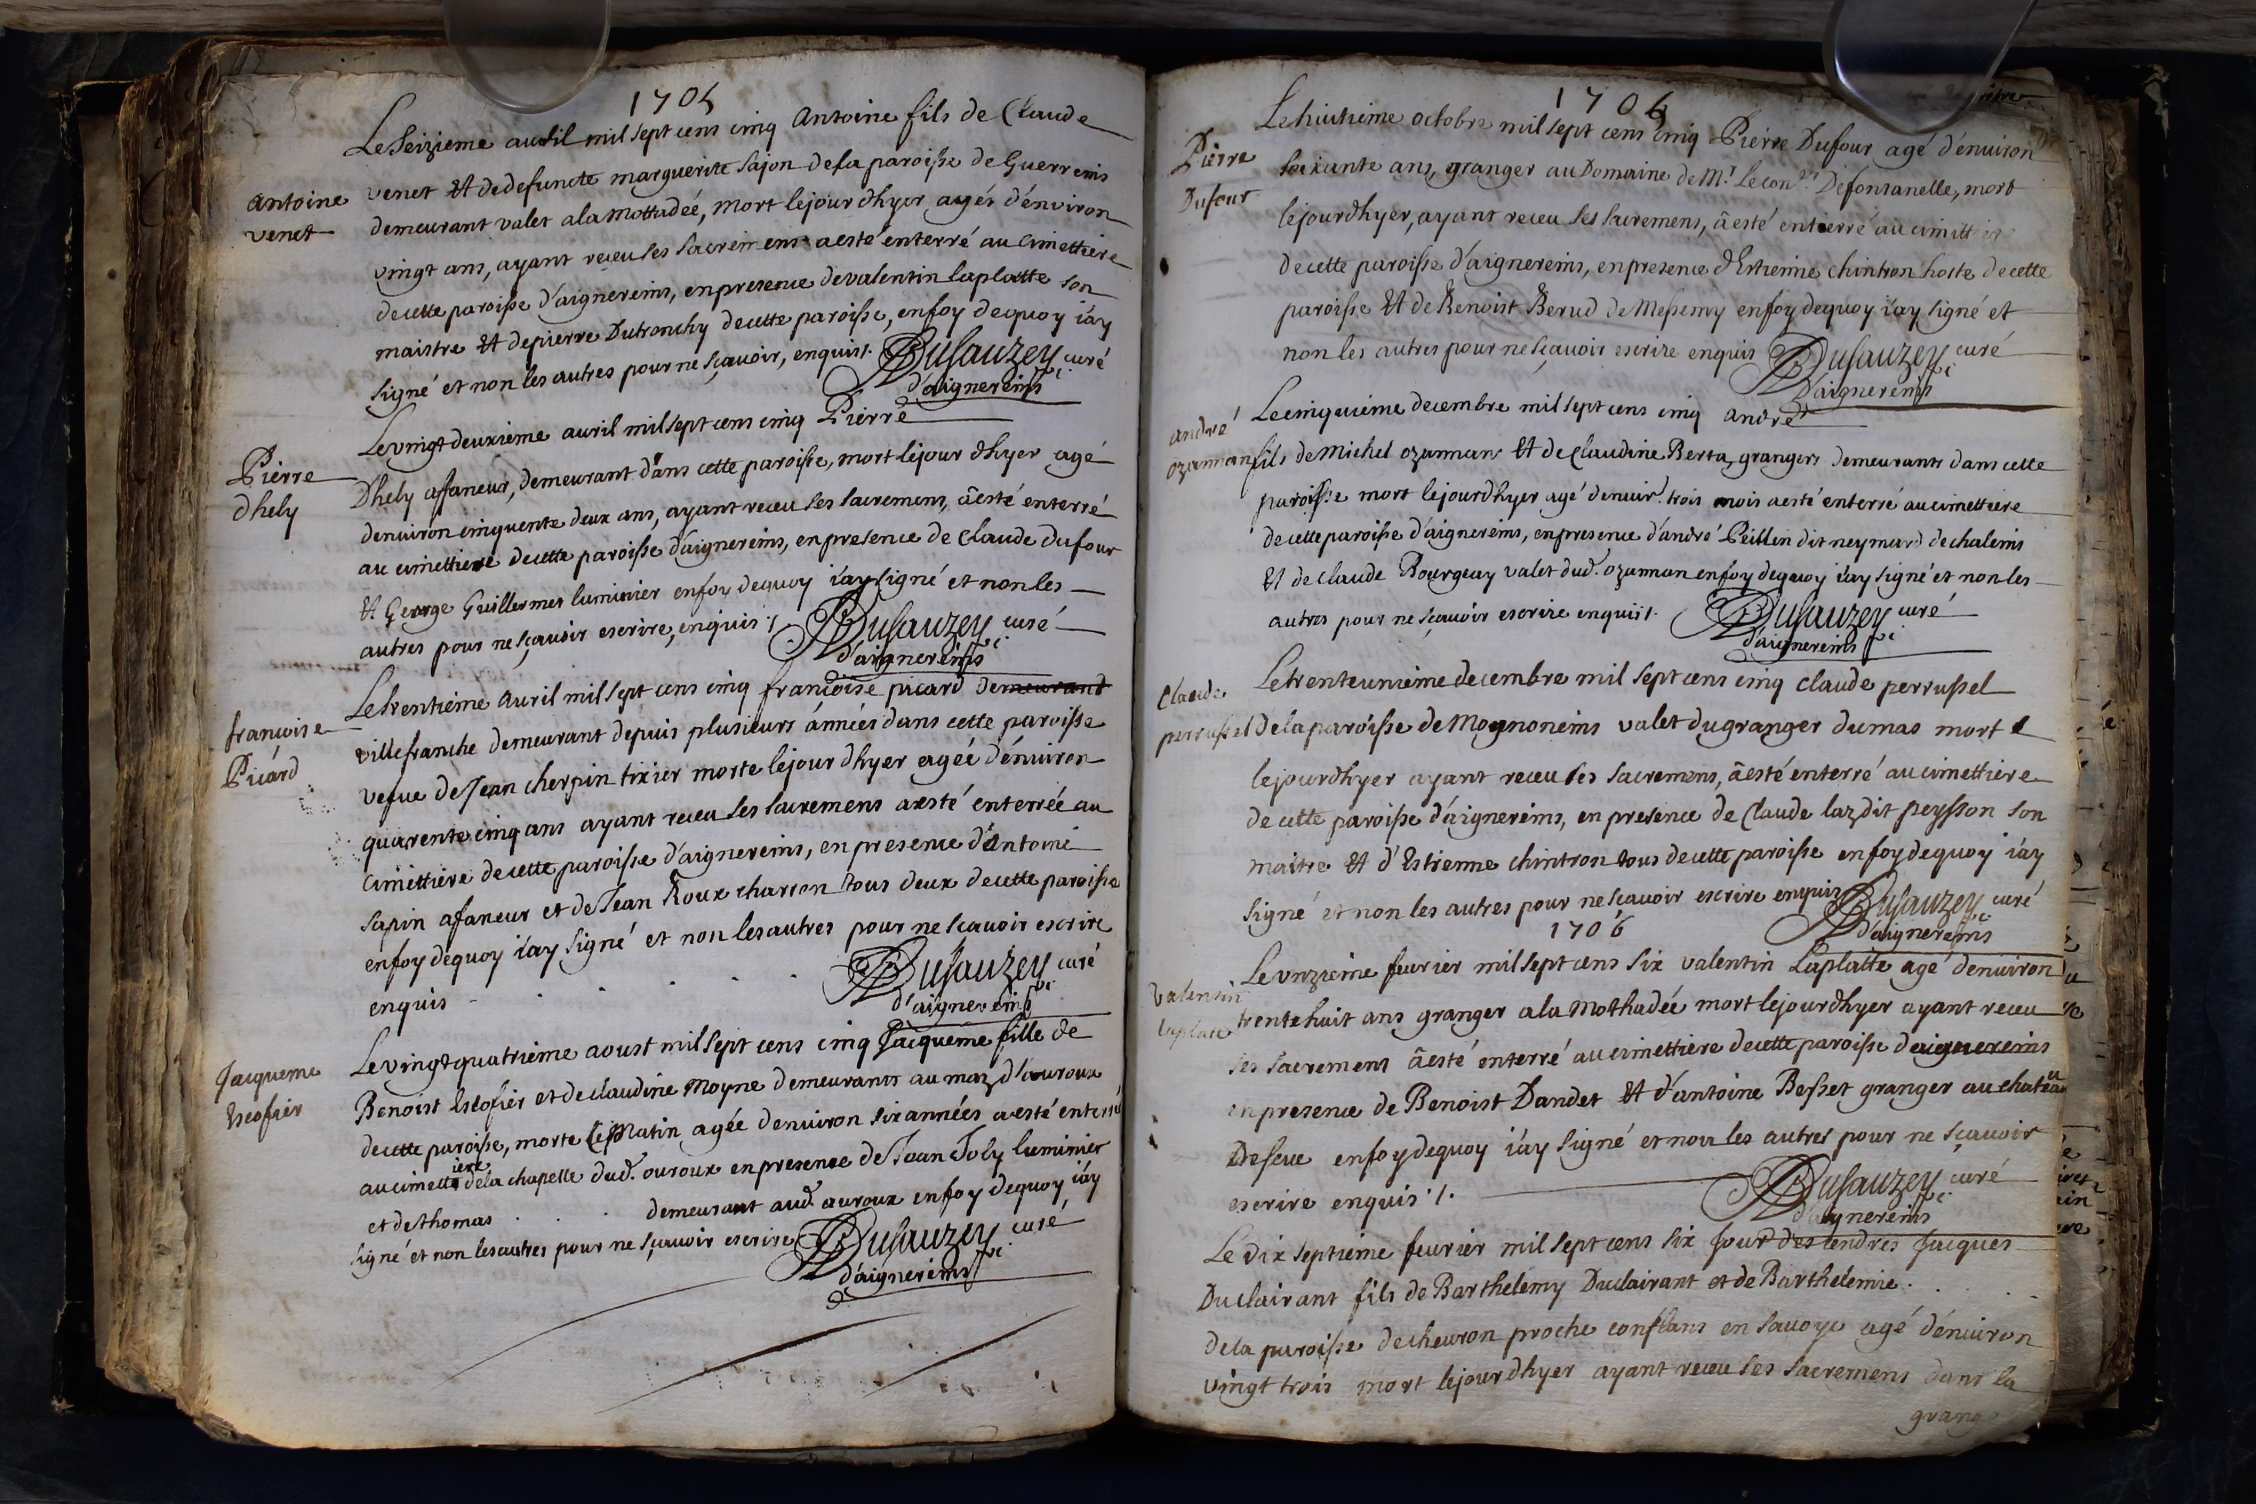 1705
Le Seizieme auvril mil sept cens cinq Antoine fils de Claude
antoine
venet
venet Et de defuncte marguerite Sajon de la paroisse de Guerreins
demeurant valet a la Mottadeé, mort le jour dhyer agés d'énviron
vingt ans, ayant receu ses sacremens a esté énterré au cimettiere
de cette paroisse d'aignereins, en presence de valentin laplatte son
maistre Et de pierre Dutronchy de cette paroisse, en foy de quoy i'ay
signé et non les autres pour ne sçavoir, enquis /. Dusauzey curé
d'aignereins
Le vingt deuxième avril mil sept cens cinq Pierre
Pierre
dhely
D'hely affaneur, demeurant dans cette paroisse, mort le jour dhyer agé
denuiron cinquente deux ans, ayant receu ses sacremens, â esté énterré
au cimettiere de cette paroisse d'aignereins, en presence de Claude dufour
Et George Guillermet luminier en foy de quoy i'ay signé et non les
autres pour ne sçavoir escrire, énquis ./ Dusauzey curé
d'aignereins
Le trentiéme avril mil sept cens cinq françoise picard demeurand
françoise
Picard
villefranche demeurant depuis plusieurs ánnées dans cette paroisse
vefue de Jean cherpin tixier morte le jour dhyer ageé d'énviron
quarente cinq ans ayant receu ses sacremens a esté énterrée au
cimettiére de cette paroisse d'aignereins, en presence d'Antoine
sapin afaneur et de Jean Roux charron tous deux de cette paroisse
en foy de quoy i'ay signé et non les autres pour ne scavoir escrire
enquis Dusauzey curé
d'aignereins
Le vingt quatriéme aoust mil sept cens cinq Jacquéme fille de
Jacqueme
Escofier
Benoist Escofier et de claudine Moyne demeurants au maz d'ouroux
de cette paroisse, morte le matin agée denuiron six années a esté enterré
au cimettiere de la chapelle dud. ouroux en presence de Jean Joly luminier
et de thomas . . . demeurant aud. ouroux en foy de quoy i'ay
signé et non les autres pour ne sçavoir escrire Dusauzey curé
d'aignereins
1705
Le huitiéme octobre mil sept cens cinq Pierre Dufour agé d'énuiron
Pierre
Dufour
soixante ans, granger au Domaine de Mr. Le con.er Defontanelle, mort
le jour dhyer, ayant receu ses sacremens, â esté enterré au cimittiere
de cette paroisse d'aignereins, en presence d'Estienne chintron hoste de cette
paroisse Et de Benoist Berud de Messemy en foy de quoy i'ay signé et
non les autres pour ne sçavoir escrire enquis Dusauzey curé
D'aignereins
Le cinquiéme decembre mil sept cens cinq andre
andré
ozannan
fils de Michel ozannans Et de Claudine Berta, grangers demeurants dans cette
paroisse mort le jour dhyer agé denuir. trois mois a esté énterré au cimettiere
de cette paroisse d'aignereins, en presence d'andré Peillon dit neymard de chaleins
Et de claude Bourgeay valet dud. ozannan en foy de quoy i'ay signé et non les
autres pour ne sçavoir escrire enquis /. Dusauzey curé
d'aignereins
Le trente unième decembre mil sept cens cinq claude perrussel
Claude
perrussel
de la paroisse de Mognoneins valet du granger dumas mort
le jour dhyer ayant receu ses sacremens, â esté enterré au cimettiere
de cette paroisse d'aignereins, en presence de Claude laz dit peysson son
maitre Et d'Estienne chintron tous de cette paroisse en foy de quoy i'ay
signé et non les autres pour ne sçavoir escrire enquis Dusauzey curé
d'aignereins
1706
Le vnzieme feurier mil sept cens six valentin Laplatte agé denuiron
valentin
laplatte
trente huit ans granger a la Mothadée mort le jour dhyer ayant receu
ses sacremens â esté énterré au cimettiere de cette paroisse d'aignereins
en presence de Benoist Dandet Et d'antoine Besset granger au chateau
Deseue en foy de quoy i'ay signé et non les autres pour ne sçavoir
escrire enquis ./. Dusauzey curé
d'aignereins
Le dix septieme feurier mil sept cens six jour des cendres Jacques
Duclairant fils de Barthelemy Duclairant et de Barthélemie . . .
de la paroisse de cheuron proche conflans en savoye agé d'énuiron
vingt trois mort le jour dhyer ayant receu ses sacremens dans la
grange